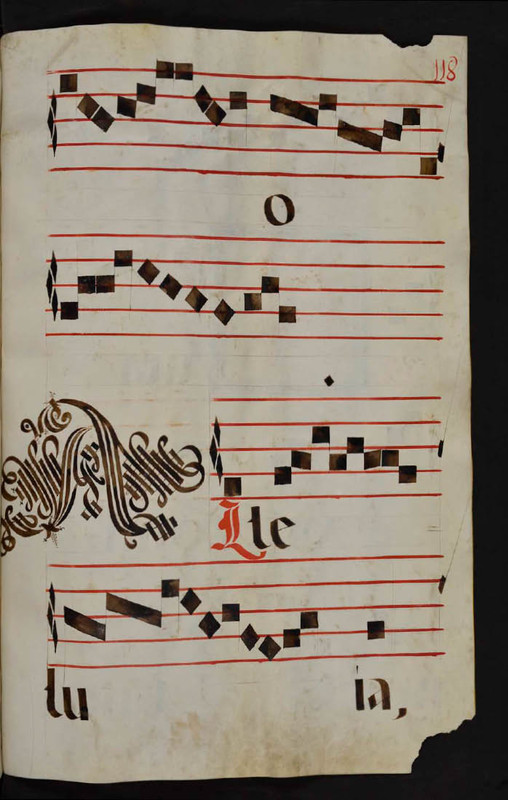 118
o
A Lle
lu ia,